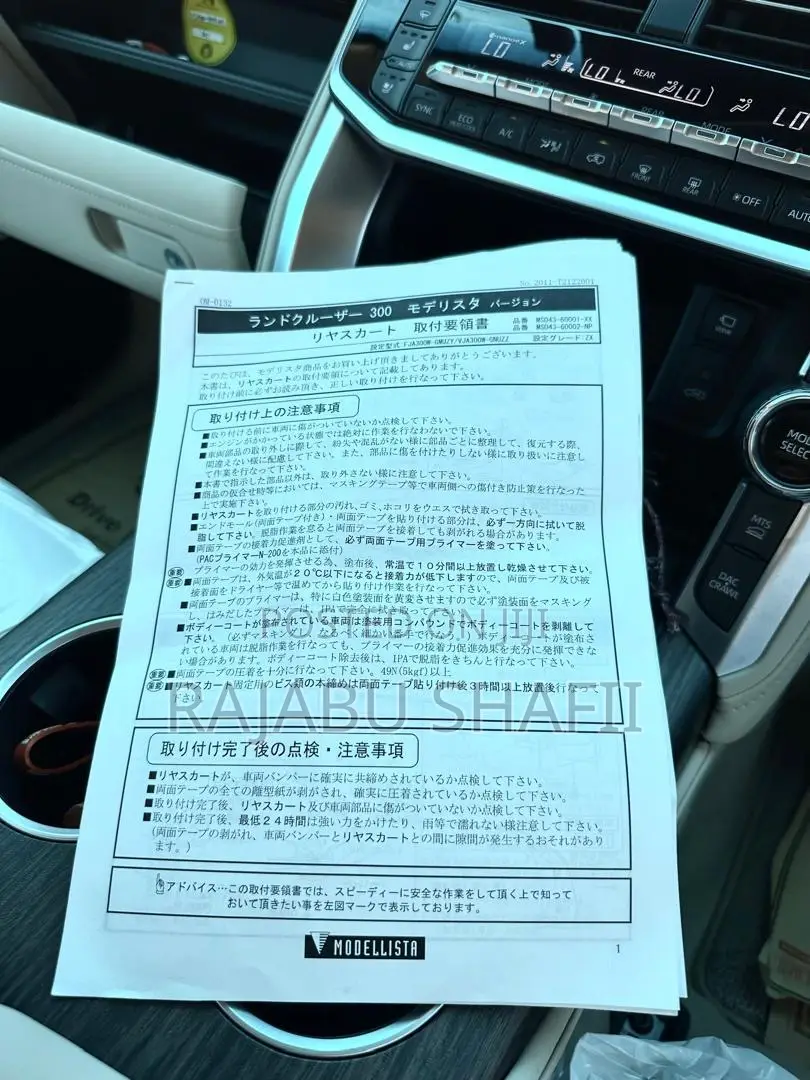 nanoeX
LO
LO
REAR
LO
LO
AUTO
SYNC
ECO
A/C
REAR
MODE
FRONT
REAR
OFF
AUTO
VIEW
MODE
SELECT
MTS
DAC
CRAWL
Drive
OM-0132
No. 2011 T2122001
ランドクルーザー 300 モデリスタ バージョン
リヤスカート 取付要領書
品番 MSD43-60001-XX
品番 MSD43-60002-NP
設定型式:FJA300W-GMUZY/VJA300W-GNUZZ
設定グレード:ZX
このたびは、モデリスタ商品をお買い上げ頂きましてありがとうございます。
本書は、リヤスカートの取付要領について記載してあります。
取り付け前に必ずお読み頂き、正しい取り付けを行なって下さい。
取り付け上の注意事項
■取り付ける前に車両に傷がついていないか点検して下さい。
■エンジンがかかっている状態では絶対に作業を行なわないで下さい。
■車両部品の取り外しに際して、紛失や混乱がない様に部品ごとに整理して、復元する際、
間違えない様に配慮して下さい。また、部品に傷を付けたりしない様に取り扱いに注意し
て作業を行なって下さい。
■本書で指示した部品以外は、取り外さない様に注意して下さい。
■商品の仮合せ時等においては、マスキングテープ等で車両側への傷付き防止策を行なった
上で実施下さい。
■リヤスカートを取り付ける部分の汚れ、ゴミ、ホコリをウエスで拭き取って下さい。
■エンドモール(両面テープ付き)・両面テープを貼り付ける部分は、必ず一方向に拭いて脱
脂して下さい。脱脂作業を怠ると両面テープを接着しても剥がれる場合があります。
■両面テープの接着力促進剤として、必ず両面テープ用プライマーを塗って下さい。
(PACプライマーN-200を本品に添付)
重要 プライマーの効力を発揮させる為、塗布後、常温で10分間以上放置し乾燥させて下さい。
重要 ■両面テープは、外気温が20℃以下になると接着力が低下しますので、両面テープ及び被
接着面をドライヤー等で温めてから貼り付け作業を行なって下さい。
■両面テープのプライマーは、特に白色塗装面を黄変させますので必ず塗装面をマスキング
し、はみだした場合は、IPAで完全に拭き取って下さい。
■ボディーコートが塗布されている車両は塗装用コンパウンドでボディーコートを剥離して
下さい。(必ずマスキングし、なるべく細かい番手で行なう。)ボディーコートが塗布さ
れている車両は脱脂作業を行なっても、プライマーの接着力促進効果を充分に発揮できな
い場合があります。ボディーコート除去後は、IPAで脱脂をきちんと行なって下さい。
重要 ■両面テープの圧着を十分に行なって下さい。49N(5kgf)以上
重要 ■リヤスカート固定用のビス類の本締めは両面テープ貼り付け後3時間以上放置後行なって
下さい。
RAJABU SHAFII
取り付け完了後の点検・注意事項
■リヤスカートが、車両バンパーに確実に共締めされているか点検して下さい。
■両面テープの全ての離型紙が剥がされ、確実に圧着されているか点検して下さい。
■取り付け完了後、リヤスカート及び車両部品に傷がついていないか点検して下さい。
■取り付け完了後、最低24時間は強い力をかけたり、雨等で濡れない様注意して下さい。
(両面テープの剥がれ、車両バンパーとリヤスカートとの間に隙間が発生するおそれがあり
ます。)
アドバイス…この取付要領書では、スピーディーに安全な作業をして頂く上で知って
おいて頂きたい事を左図マークで表示しております。
MODELLISTA
1